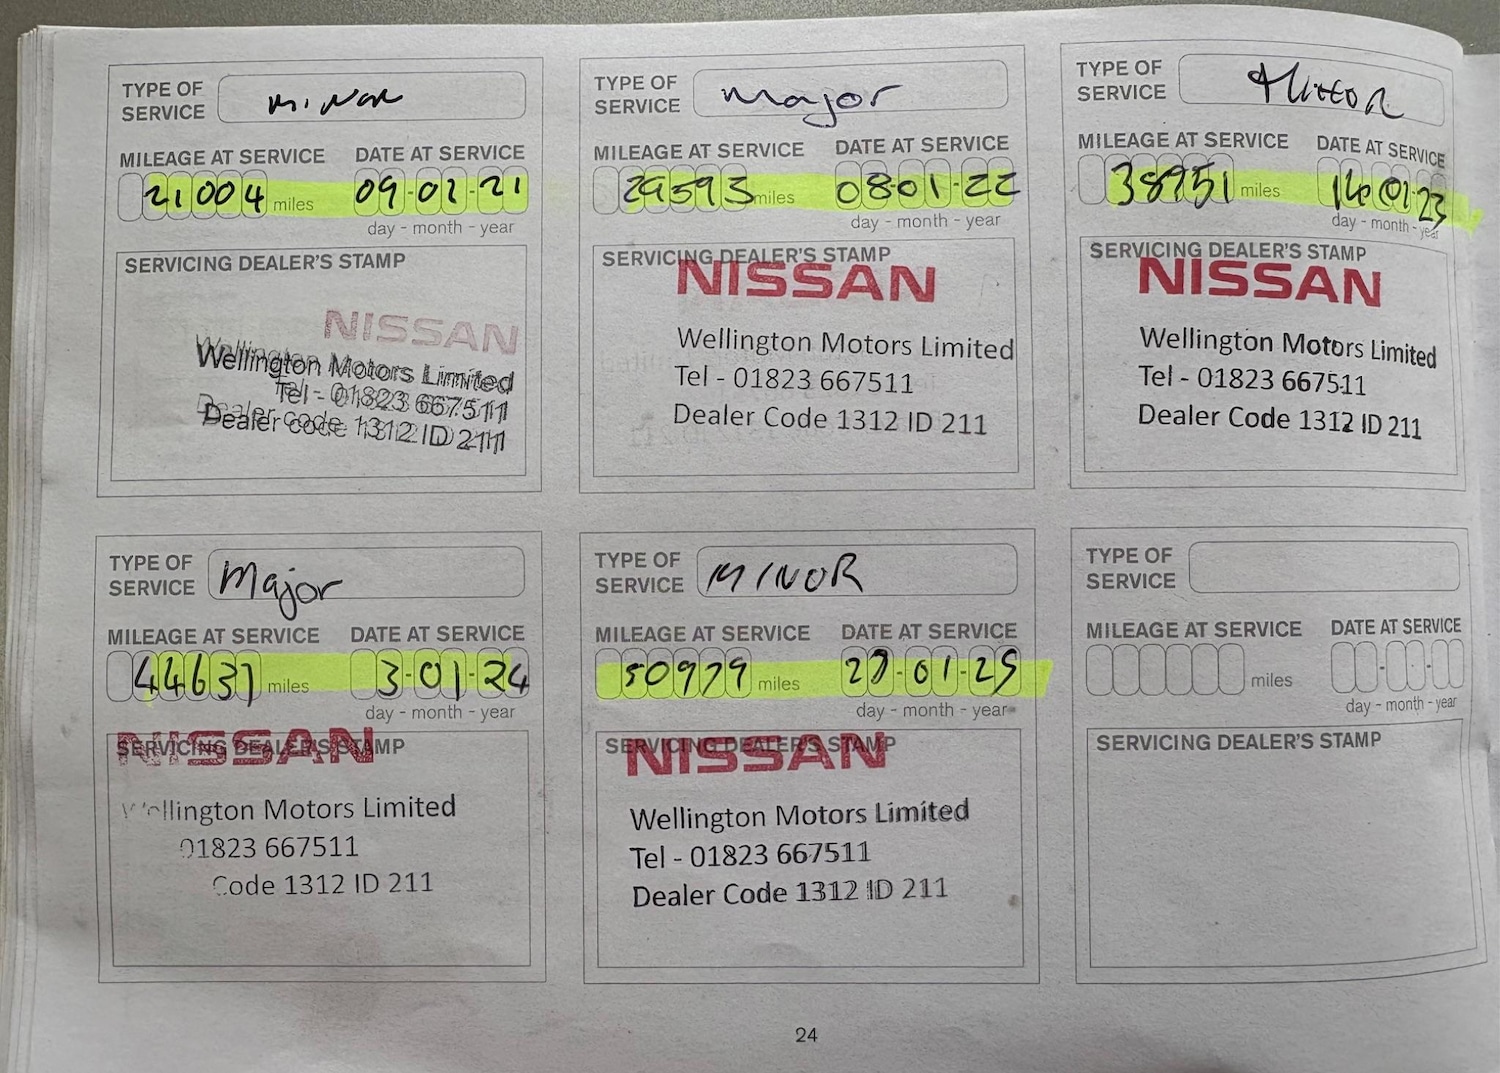 TYPE OF SERVICE minor
MILEAGE AT SERVICE DATE AT SERVICE
21004 miles 09-01-21
day - month - year
SERVICING DEALER'S STAMP
NISSAN
Wellington Motors Limited
Tel - 01823 667511
Dealer code 1312 ID 211
TYPE OF SERVICE Major
MILEAGE AT SERVICE DATE AT SERVICE
29593 miles 08-01-22
day - month - year
SERVICING DEALER'S STAMP
NISSAN
Wellington Motors Limited
Tel - 01823 667511
Dealer Code 1312 ID 211
TYPE OF SERVICE
MILEAGE AT SERVICE DATE AT SERVICE
38951 miles 23
day - month - year
SERVICING DEALER'S STAMP
NISSAN
Wellington Motors Limited
Tel - 01823 667511
Dealer Code 1312 ID 211
TYPE OF SERVICE Major
MILEAGE AT SERVICE DATE AT SERVICE
44631 miles 3-01-24
day - month - year
SERVICING DEALER'S STAMP
NISSAN
Wellington Motors Limited
01823 667511
Code 1312 ID 211
TYPE OF SERVICE MINOR
MILEAGE AT SERVICE DATE AT SERVICE
50979 miles 27-01-25
day - month - year
SERVICING DEALER'S STAMP
NISSAN
Wellington Motors Limited
Tel - 01823 667511
Dealer Code 1312 ID 211
TYPE OF SERVICE
MILEAGE AT SERVICE DATE AT SERVICE
miles
day - month - year
SERVICING DEALER'S STAMP
24